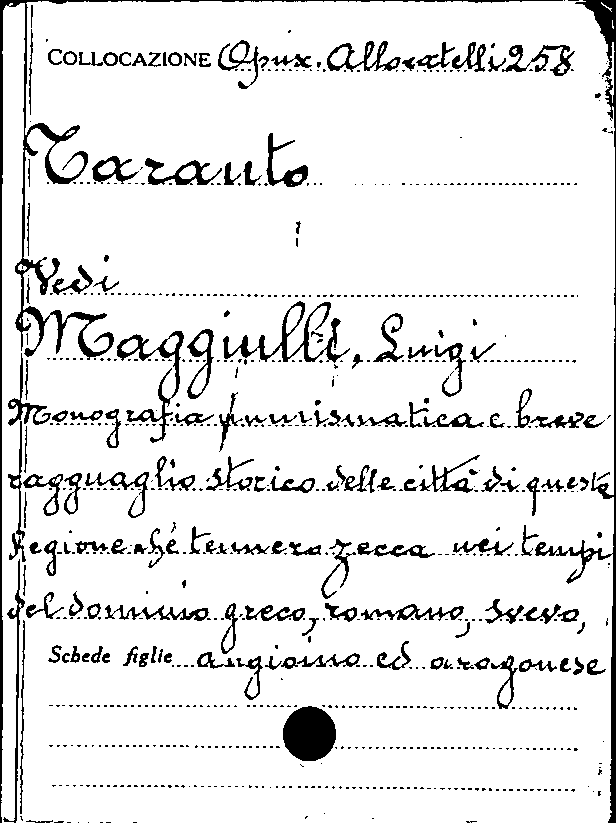 COLLOCAZIONE Opux. Allocatelli 258
Taranto
Vedi
Maggiulli, Luigi
Monografia numismatica e breve
ragguaglio storico delle città di questa
Regione che tennero zecca nei tempi
del dominio greco, romano, svevo,
Schede figlie angioino ed aragonese